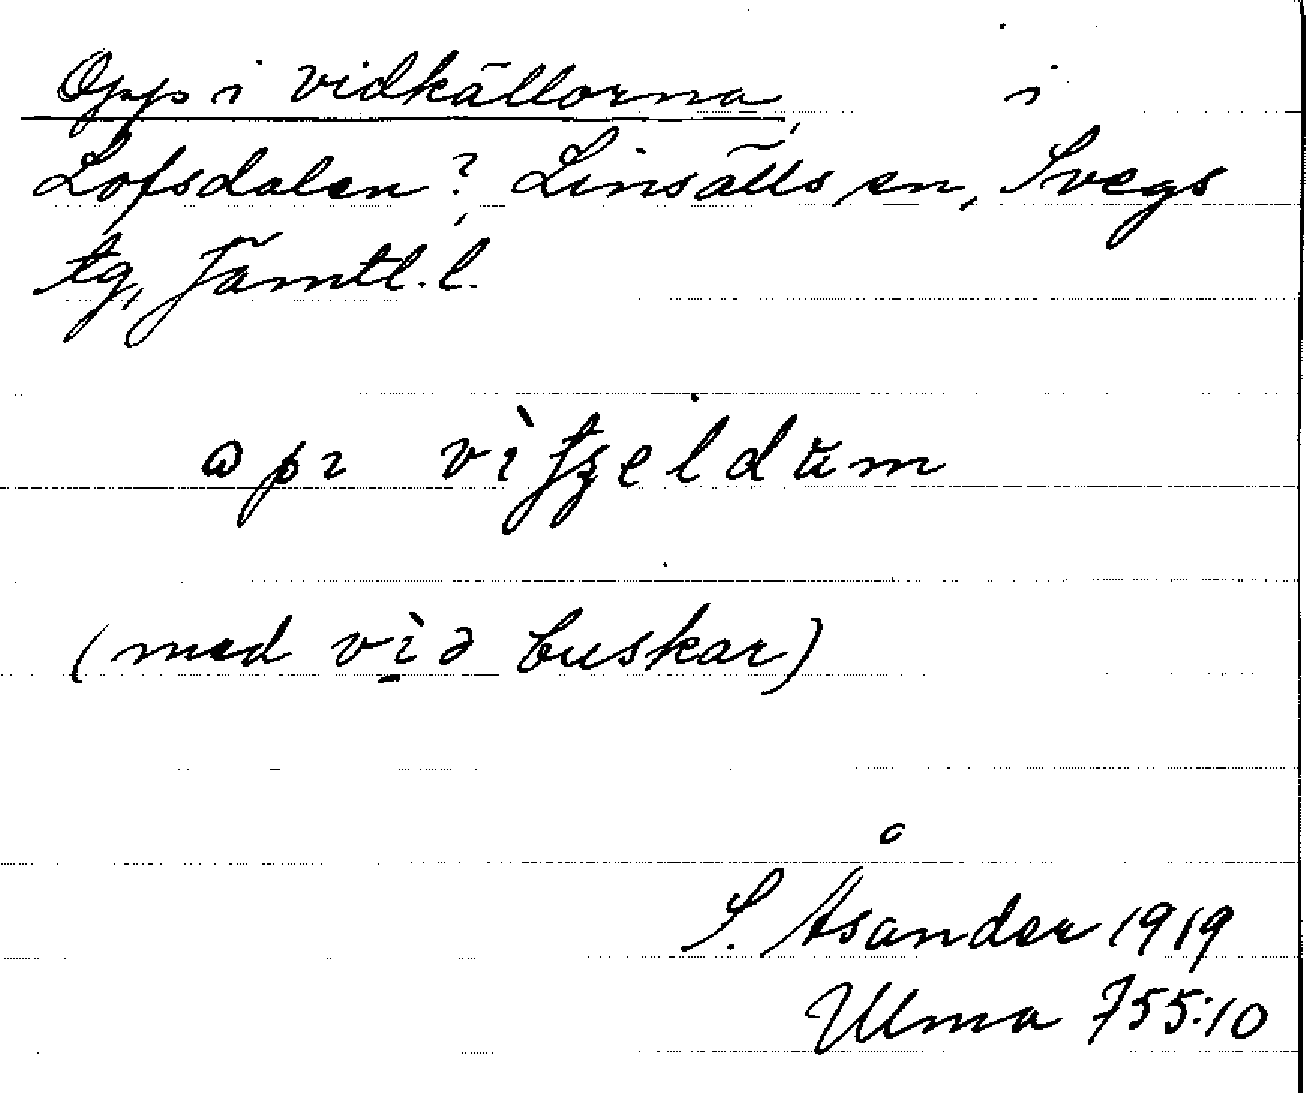 Opp i vidkällorna, i
Lofsdalen?, Linsälls sn, Svegs
tg, Jämtl. l.
(med vìd buskar)
S. Åsander 1919
Ulma 755:10